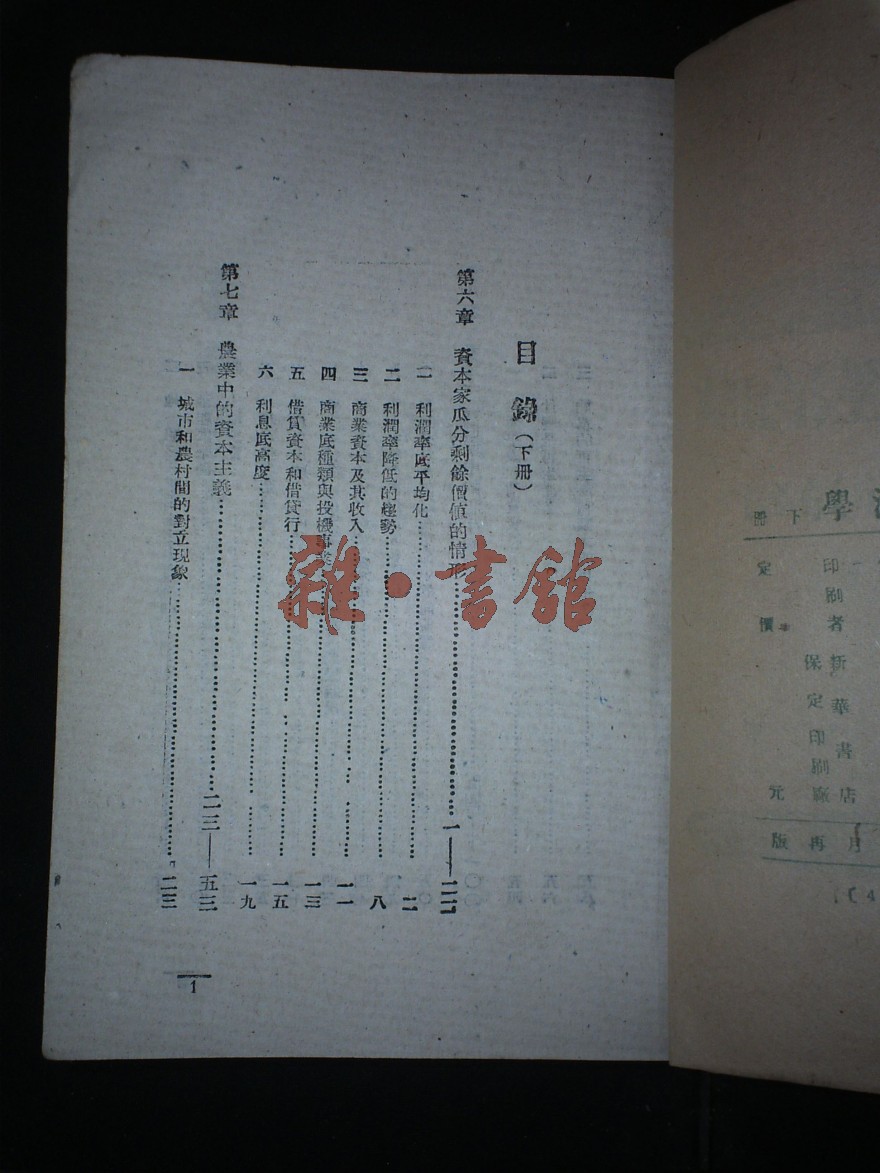 目錄（下册）
第六章 資本家瓜分剩餘價值的情形……一——二二
一 利潤率底平均化……二
二 利潤率降低的趨勢……八
三 商業資本及其收入……一一
四 商業底種類與投機事業……一三
五 借貸資本和借貸行……一五
六 利息底高度……一九
第七章 農業中的資本主義……二三——五三
一 城市和農村間的對立現象……二三
1
雜·書館
學 下册
印刷者 新華書店
保定印刷廠
定價 元
月再版